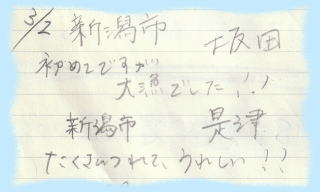 3/2 新潟市 坂田
初めてですが
大漁でした!!
新潟市 是津
たくさんつれて、うれしい!!